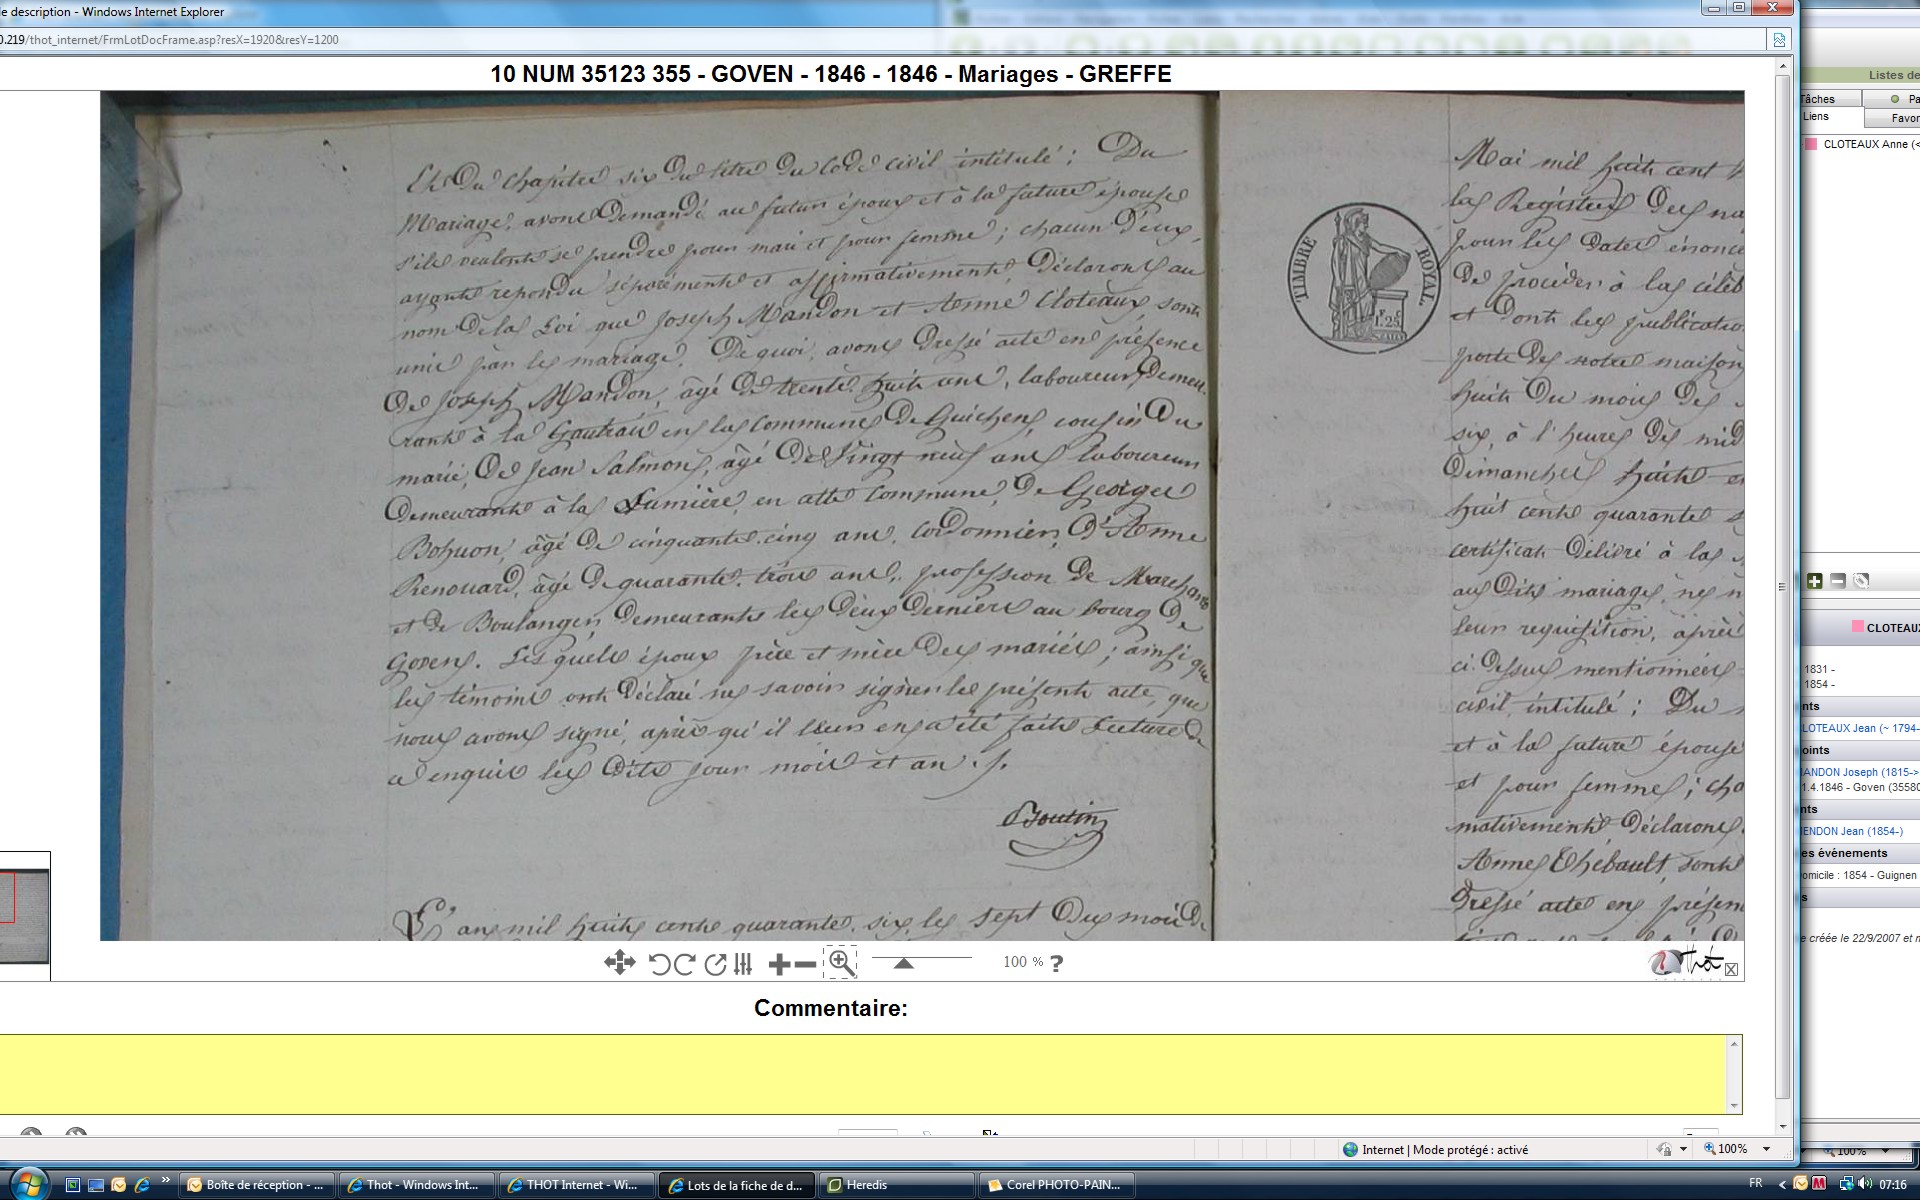 e description - Windows Internet Explorer
0.219/thot_internet/FrmLotDocFrame.asp?resX=1920&resY=1200
10 NUM 35123 355 - GOVEN - 1846 - 1846 - Mariages - GREFFE
Et Du chapitre six Du titre Du Code civil intitulé ; Du
Mariage, avons Demandé au futur époux et à la future épouse
s'ils veulent se prendre pour mari et pour femme ; chacun D'eux,
ayant repondu séparément et affirmativement Déclarons au
nom De la Loi que Joseph Mandon et Anne Cloteaux, sont
unis par le mariage. De quoi, avons Dressé acte en présence
De Joseph Mandon, âgé De trente huit ans, laboureur, Demeu-
rant à la Gautrais en la Commune De Guichen, cousin Du
marié, De Jean Salmon, âgé De Vingt neuf ans laboureur
Demeurant à la Lumière, en cette Commune, De George
Bohuon, âgé De cinquante-cinq ans, cordonnier, D'Anne
Renouard, âgé De quarante-trois ans, profession de Marchand
et de Boulanger, Demeurants les Deux Derniers au bourg De
Goven. Lesquels époux père et mère Des mariés ; ainsi que
les témoins ont Déclaré ne savoir signer le présent acte, que
nous avons signé, après qu'il leur en a été fait Lecture De
ce enquis les Dits jour mois et an ./.
Boutin
L'an mil huit cent quarante-six, le sept Du mois D
TIMBRE ROYAL.
1.25
Mai mil huit cent
las Registres Des na
pour les Dates énonc
De procéder à la céléb
et Dont les publicatio
porte De notre maison
huit Du mois De
six, à l'heure De mid
Dimanche huit
huit cent quarante s
certificat Délivré à la
au Dit mariage, ne n
leur requisition, après
ci-Dessus mentionnées
civil, intitulé ; Du
et à la future épouse
et pour femme ; cha
mativement Déclarons
Anne Thébault, sont
Dressé acte en présen
100 % ?
Thot
Commentaire:
Internet | Mode protégé : activé
100%
Listes de
Tâches
Pa
Liens
Favor
CLOTEAUX Anne (<
CLOTEAUX
1831 -
1854 -
nts
CLOTEAUX Jean (~ 1794-
oints
MANDON Joseph (1815->
1.4.1846 - Goven (35580
nts
MENDON Jean (1854-)
es événements
omicile : 1854 - Guignen
s
e créée le 22/9/2007 et m
100%
Boîte de réception - ...
Thot - Windows Int...
THOT Internet - Wi...
Lots de la fiche de d...
Heredis
Corel PHOTO-PAIN...
FR
07:16